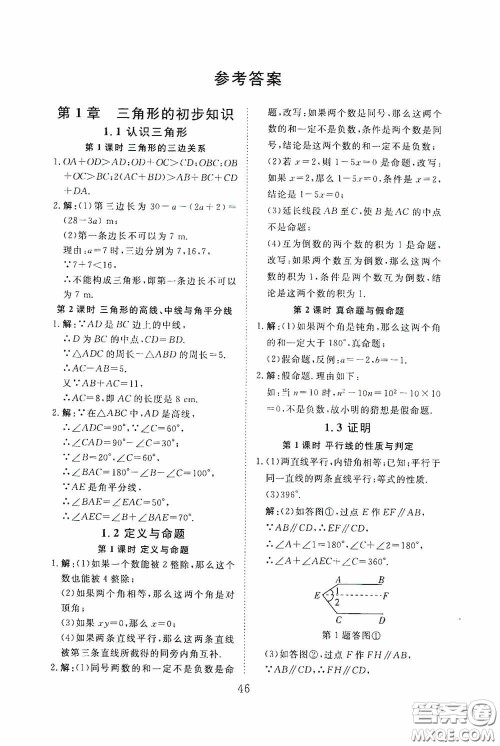 参考答案
第1章 三角形的初步知识
1.1 认识三角形
第1课时 三角形的三边关系
1.OA+OD>AD;OD+OC>CD;OB+OC>BC;OB
+OC>BC;2(AC+BD)>AB+BC+CD
+DA.
2.解:(1)第三边长为30-a-(2a+2)=
(28-3a) m;
(2)第一条边长不可以为7 m.
理由:a=7时,三边分别为7,16,7,
∵7+7<16,
∴不能构成三角形,即第一条边长不可以
为7 m.
第2课时 三角形的高线、中线与角平分线
1.解:∵AD是BC边上的中线,
∴D为BC的中点,CD=BD.
∵△ADC的周长-△ABD的周长=5 cm.
∴AC-AB=5.
又∵AB+AC=11,
∴AC=8.即AC的长度是8 cm.
2.解:∵在△ABC中,AD是高,
∴∠ADC=90°,∠C=30°,
∴∠BAC=180°-∠B-∠C=90°.
∵∠B=60°,∠C=30°,
∴∠BAC=180°-∠B-∠C=90°.
∵AE是角平分线,
∴∠BAE=∠EAC=45°,
∴∠AEC=∠B+∠BAE=105°.
1.2 定义与命题
第1课时 定义与命题
1.解:(1)如果一个数能被2整除,那么这个
数也能被4整除;
(2)如果两个角相等,那么这两个角是对
顶角;
(3)如果xy=0,那么x=0;
(4)如果两条直线平行,那么这两条直线
被第三条直线所截得的同旁内角互补.
2.解:(1)同号两数的和一定不是负数是命
题,改写:如果两个数是同号,那么这两个
数的和一定不是负数,条件是两个数同号,
结论是这两个数的和一定不是负数;
(2)若x=2,则1-5x=0是命题,改写:如
果x=2,那么1-5x=0,条件是x=2,结
论是1-5x=0;
(3)延长线段AB至C,使B是AC的中点
不是命题;
(4)互为倒数的两个数的积为1是命题,
改写:如果两个数互为倒数,那么这两个
数的积为1,条件是两个数互为倒数,结论
是这两个数的积为1.
第2课时 真命题与假命题
1.解:(1)如果两个角是钝角,那么这两个角
的和一定大于180°,真命题;
(2)假命题,反例:a=2,b=-1.
2.解:假命题.理由如下:
如:当n=10时,n²-10n=10²-10×10
=0,不是负数,故小明的猜想是假命题.
1.3 证明
第1课时 平行线的性质与判定
1.(1)两直线平行,内错角相等;已知;平行于
同一直线的两条直线平行;等式的性质.
(3)396°.
解:(2)如答图①,过点E作EF∥AB,
∵AB∥CD,∴EF∥AB∥CD,
∴∠A+∠1=180°,∠2+∠C=180°,
∴∠A+∠AEC+∠C=360°.
A B
E 1 F
2
C D
第1题答图①
(3)如答图②,过点F作FH∥AB,
∵AB∥CD,∴FH∥AB∥CD,
46